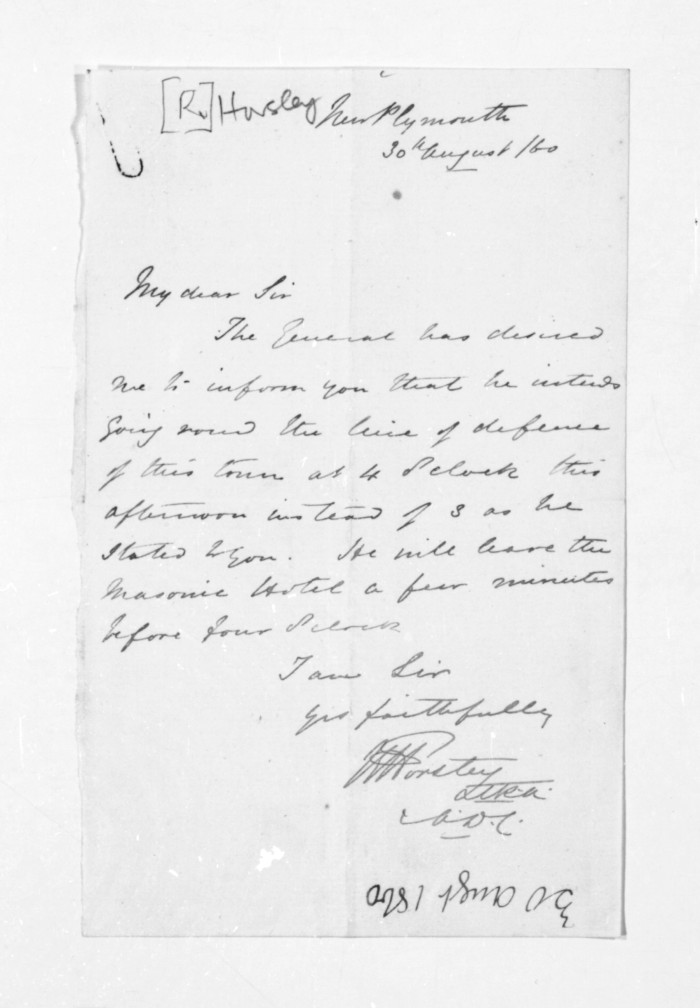 [R.] Horsley
New Plymouth
30th August /60
My dear Sir
The General has desired
me to inform you that he intends
going round the line of defence
of this town at 4 O'clock this
afternoon instead of 3 as he
stated to you. He will leave the
Masonic Hotel a few minutes
before four O'clock
I am Sir
yrs faithfully
A.D.C.
30 Augt 1860